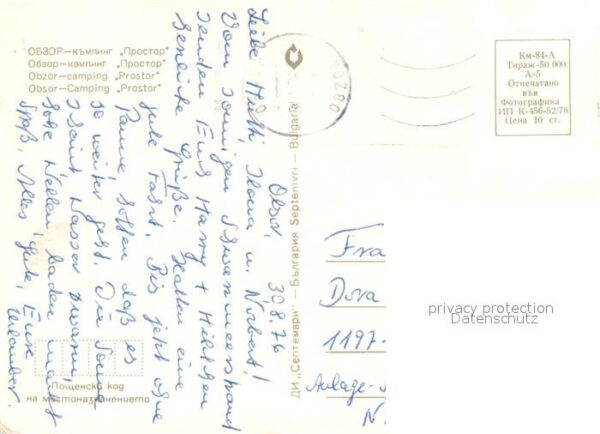 ОБЗОР—къмпинг „Простор"
Обзор—кэмпинг „Простор"
Obzor—camping „Prostor"
Obsor—Camping „Prostor"
Км-84-А
Тираж-50 000
А-5
Отпечатано
във
Фотографика
ИП К-456-52/76
Цена 10 ст.
ДИ „Септември" — България Septemvri — Bulgaria
Obsor, 30.8.76
Liebe Hilthi, Ilona u. Norbert!
Vom sonnigen Schwarzmeerstrand
senden Euch Harry + Hilde
Grüße. Hatten eine
gute Fahrt. Bis jetzt ohne
Panne, hoffen daß es
so weiter geht. Die Sonne
scheint, Wasser warm,
hohe Wellen, baden macht
Spaß. Alles gute, Eure
Urlauber.
Fra
Dora
1197-
Anlage-
N.
privacy protection
Datenschutz
Пощенски код
на местоназначението